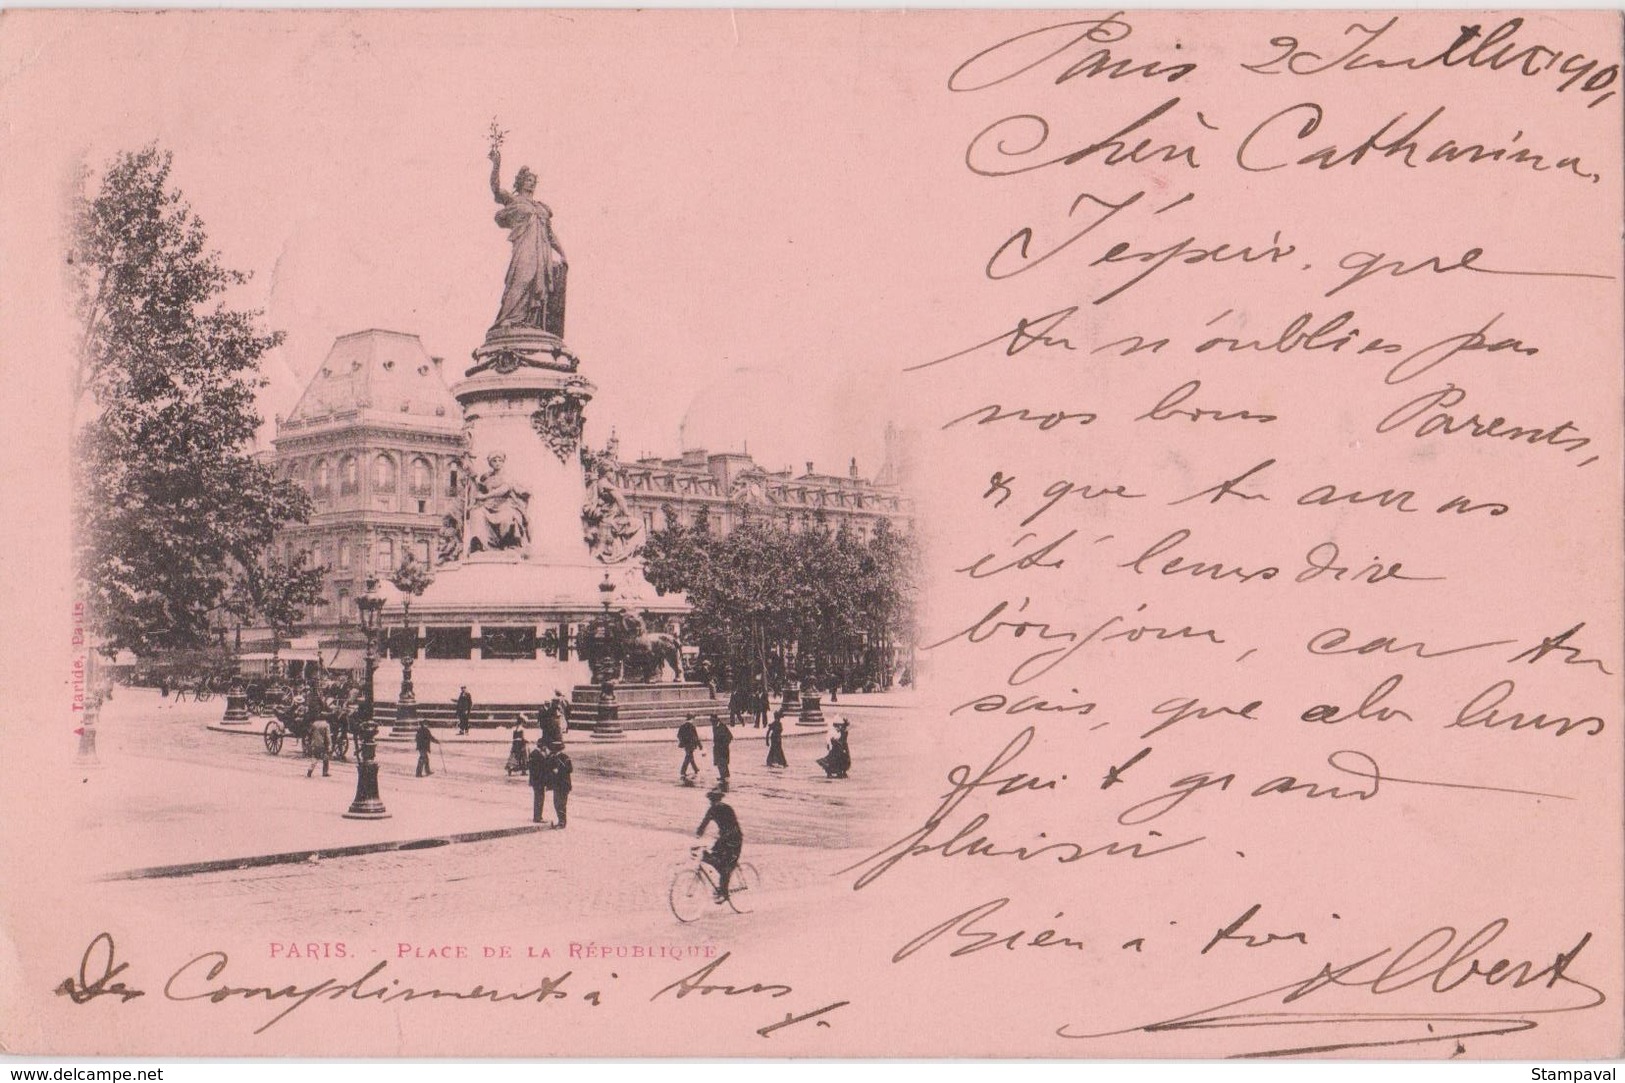 Paris 2 Juillet 90,
Chère Catharina,
J'éspèir, que
tu n'oublies pas
nos bons Parents,
& que tu auras
été leurs dire
bonjour, car tu
sais, que cela leurs
fait grand
plaisir.
Bien à toi
Albert
A. Taride, Paris
PARIS. - PLACE DE LA RÉPUBLIQUE
Des Compliments à tous
www.delcampe.net
Stampaval